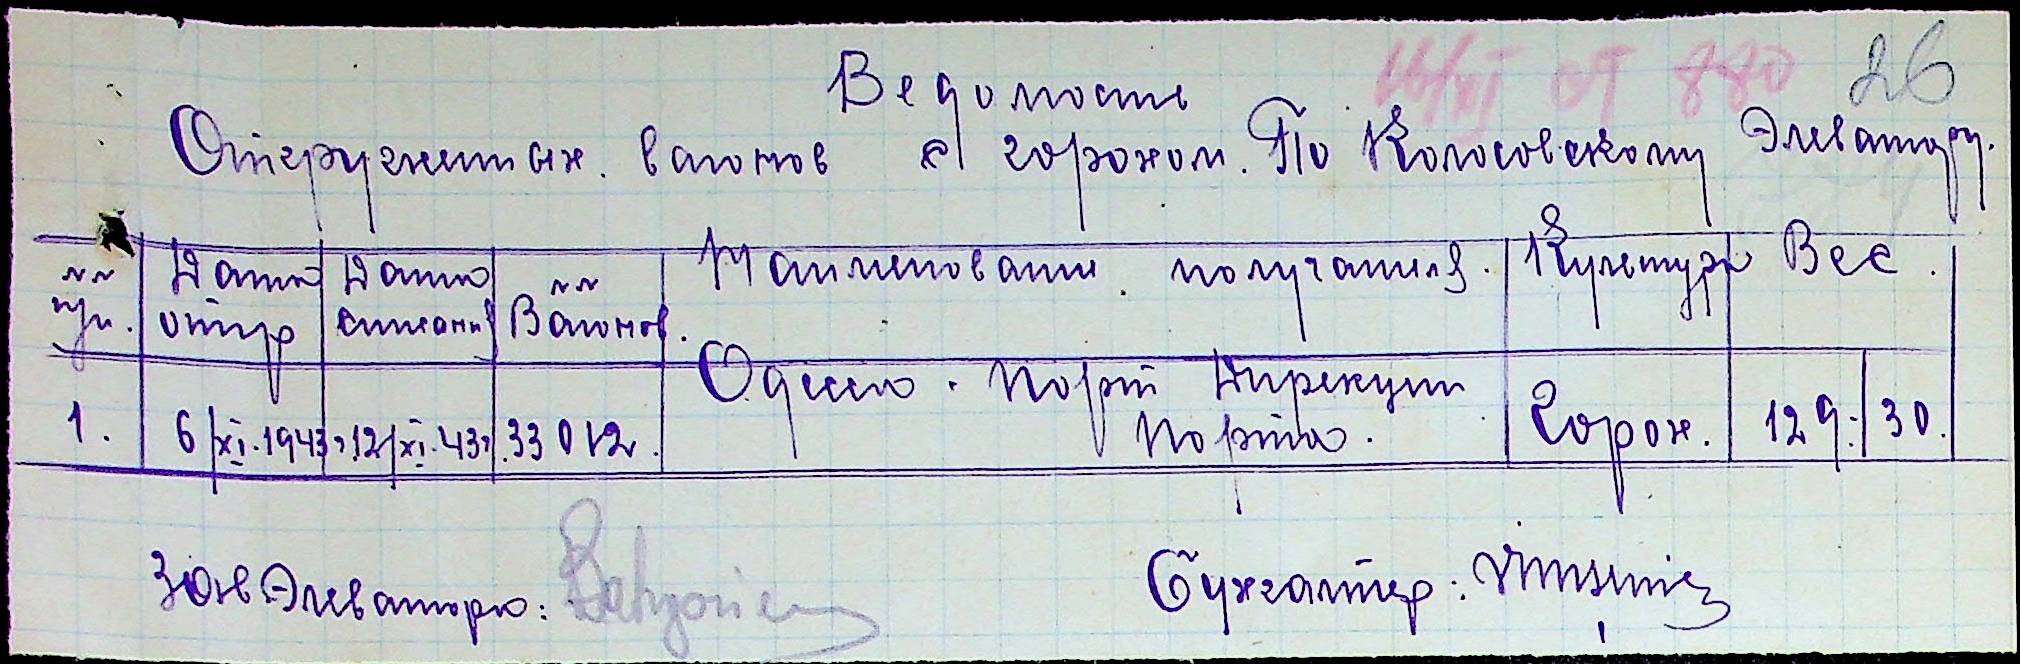 26
16/XI от 880
Ведомость
Отгруженных вагонов с горохом. По Колосовскому Элеватору.
№№ п/п. Дата отгр Дата списания №№ Вагонов. Наименование получателя. Культура Вес.
1. 6/XI-1943 12/XI-43 33012. Одесса. Порт Дирекции Порта. Горох. 129: 30.
Зав Элеватора: Бухгалтер: